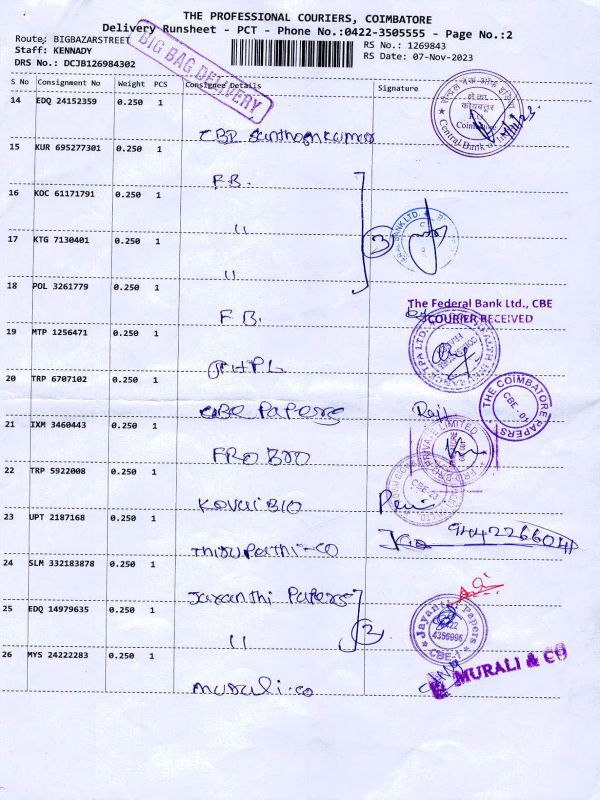 THE PROFESSIONAL COURIERS, COIMBATORE
Delivery Runsheet - PCT - Phone No.:0422-3505555 - Page No.:2
Route: BIGBAZARSTREET
RS No.: 1269843
Staff: KENNADY
RS Date: 07-Nov-2023
DRS No.: DCJB126984302
BIG BAG DELIVERY
S No Consignment No Weight PCS Consignee Details Signature
14 EDQ 24152359 0.250 1
Coimbatore
Central Bank of
15 KUR 695277301 0.250 1
F.B.
16 KOC 61171791 0.250 1
"
17 KTG 7130401 0.250 1
3
"
18 POL 3261779 0.250 1
The Federal Bank Ltd., CBE
COURIER RECEIVED
F.B.
19 MTP 1256471 0.250 1
20 TRP 6707102 0.250 1
THE COIMBATORE PAPERS
CBE - 01
CBE Papers Raji
21 IXM 3460443 0.250 1
PRIVATE LIMITED
PRO BIO
22 TRP 5922008 0.250 1
CBE-23
Kovai BIO
23 UPT 2187168 0.250 1
Thirupathi-co
24 SLM 332183878 0.250 1
Jayanthi Papers
25 EDQ 14979635 0.250 1
Jayanthi Papers
0422
4356996
CBE-1
" 2
26 MYS 24222283 0.250 1
MURALI & CO
Murali-co